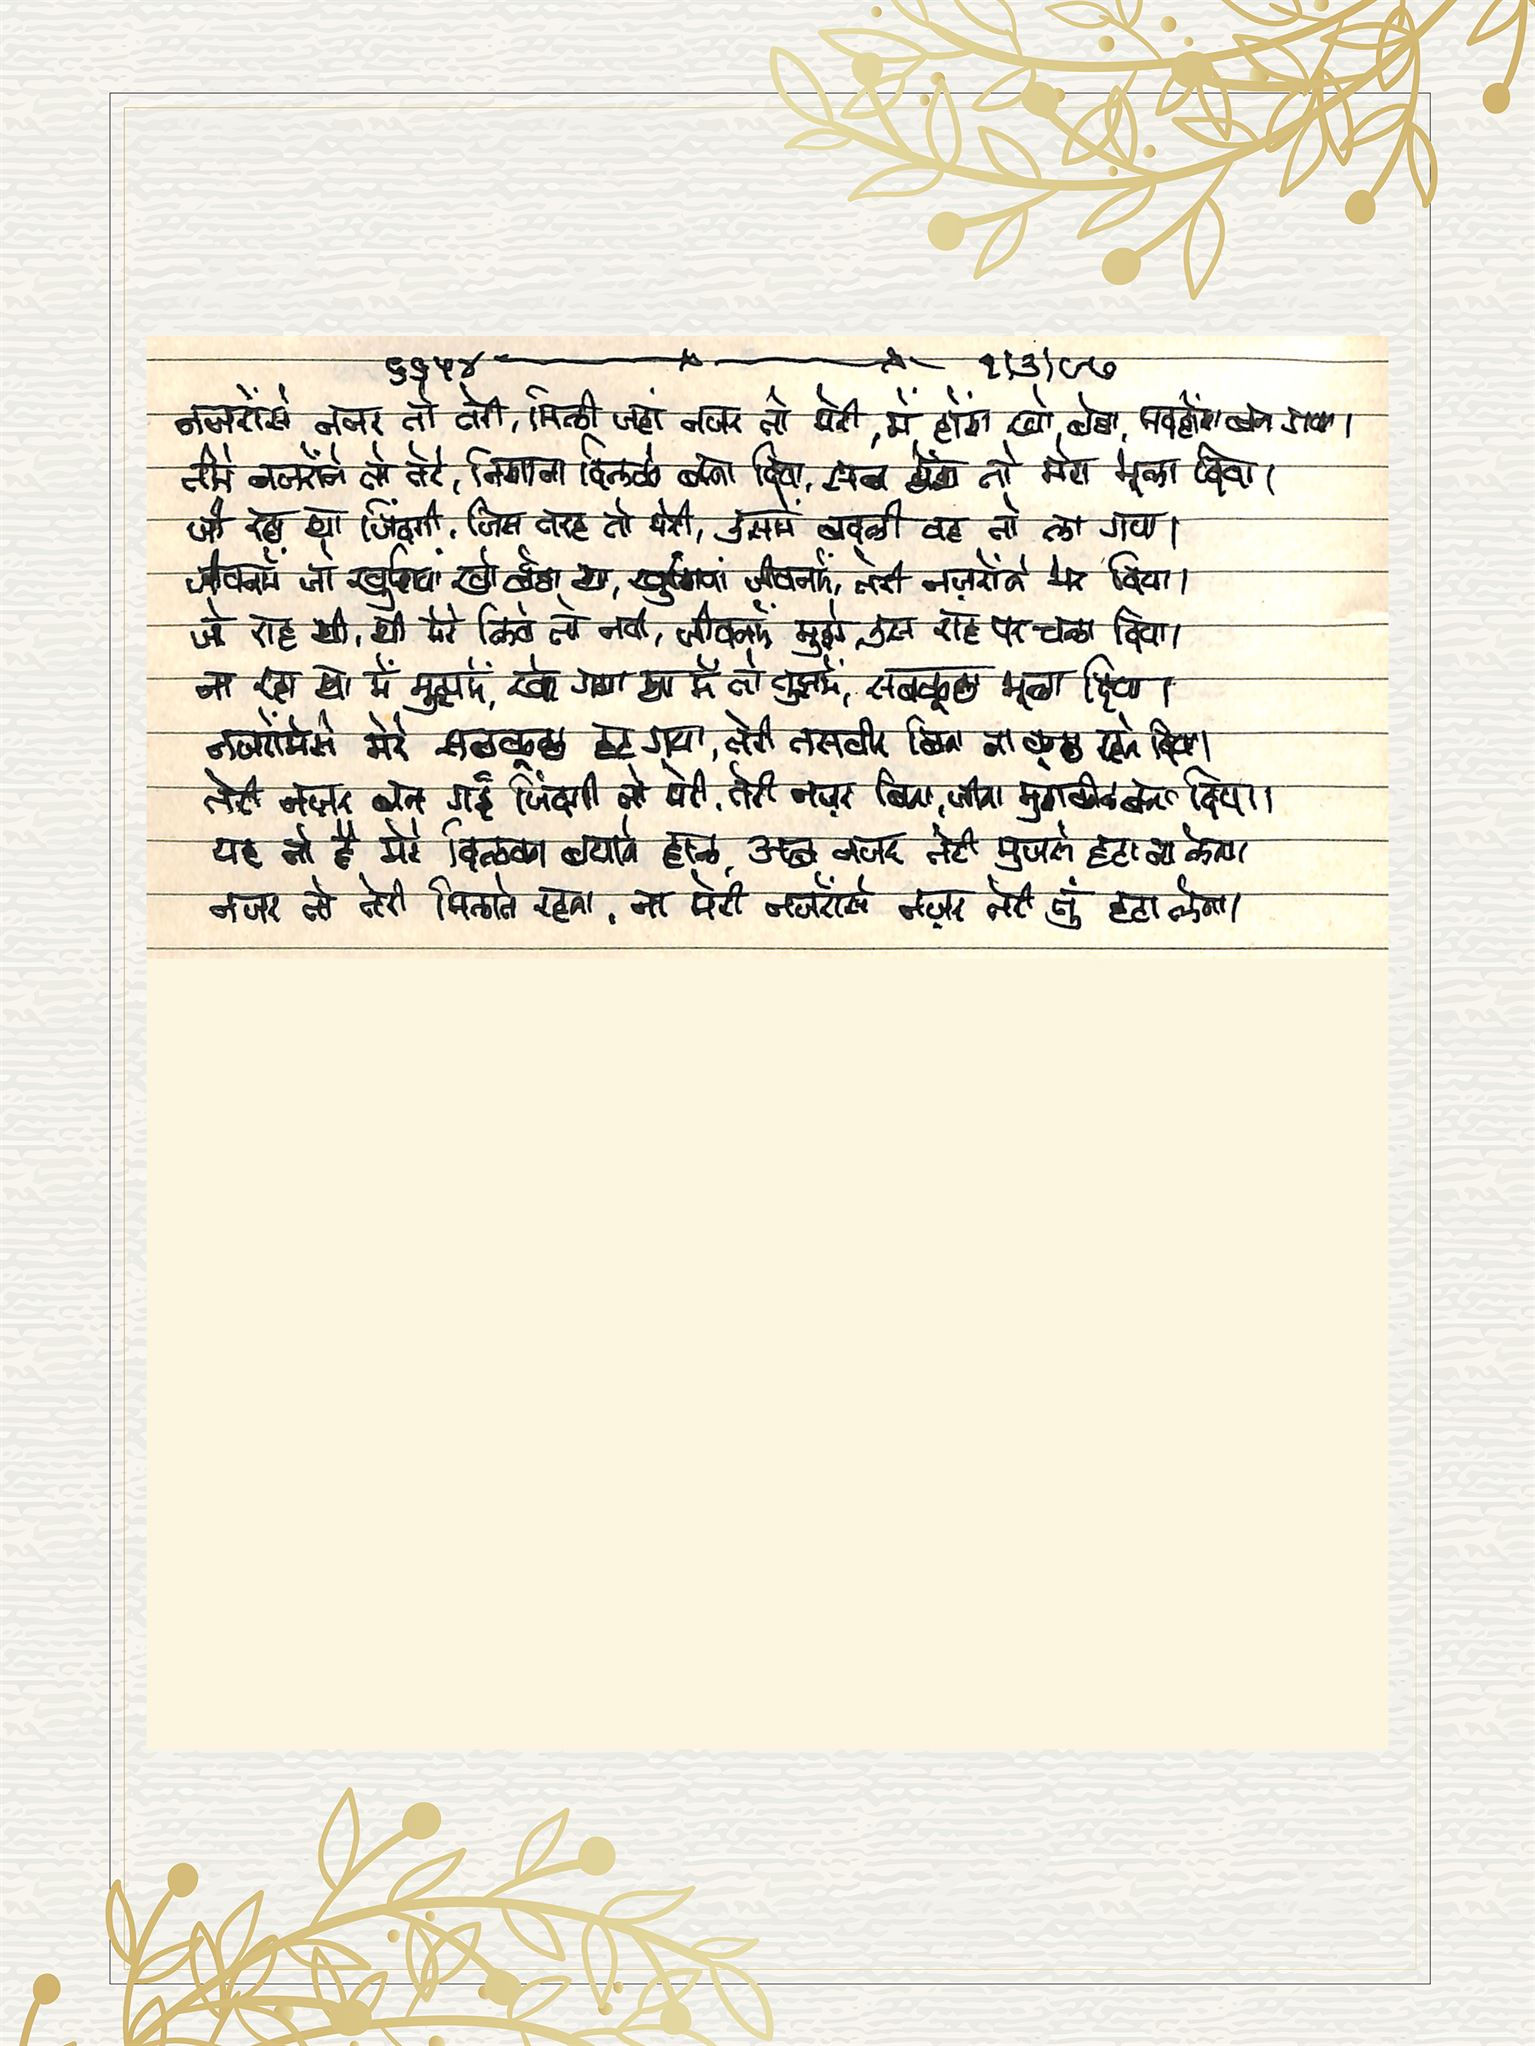 ६६५४ १।३।९७
नजरोंसे नजर तो तेरी, मिली जहां नजर तो मेरी, में होंश खो बेठा, मदहोंश बन गया।
तीरे नजरोंने तो तेरे, निशाना दिलको बना दिया, सब होंश तो मेरा भूला दिया।
जी रहा था जिंदगी, जिस तरह तो मेरी, उसमें बदली वह तो ला गया।
जीवनमें जो खुशियां खो बैठा था, खुशियां जीवनमें, तेरी नज़रोंने भर दिया।
जो राह थी, थी मेरे लिये तो नयी, जीवनमें मुझे, उस राह पर चला दिया।
ना रहा था में मुझमें, खो गया था में तो तुझमें, सबकुछ भूला दिया।
नजरोंमेसे मेरे सबकुछ हट गया, तेरी तसवीर बिना ना कुछ रहने दिया।
तेरी नज़र बन गई जिंदगी तो मेरी, तेरी नज़र बिना, जीना मुश्कील बना दिया।
यह तो है मेरे दिलका बयाने हाल, अब नजर तेरी मुजसे हटा ना लेना।
नजर तो तेरी मिलाते रहना, ना मेरी नजरोंसे नज़र तेरी तुं हटा लेना।